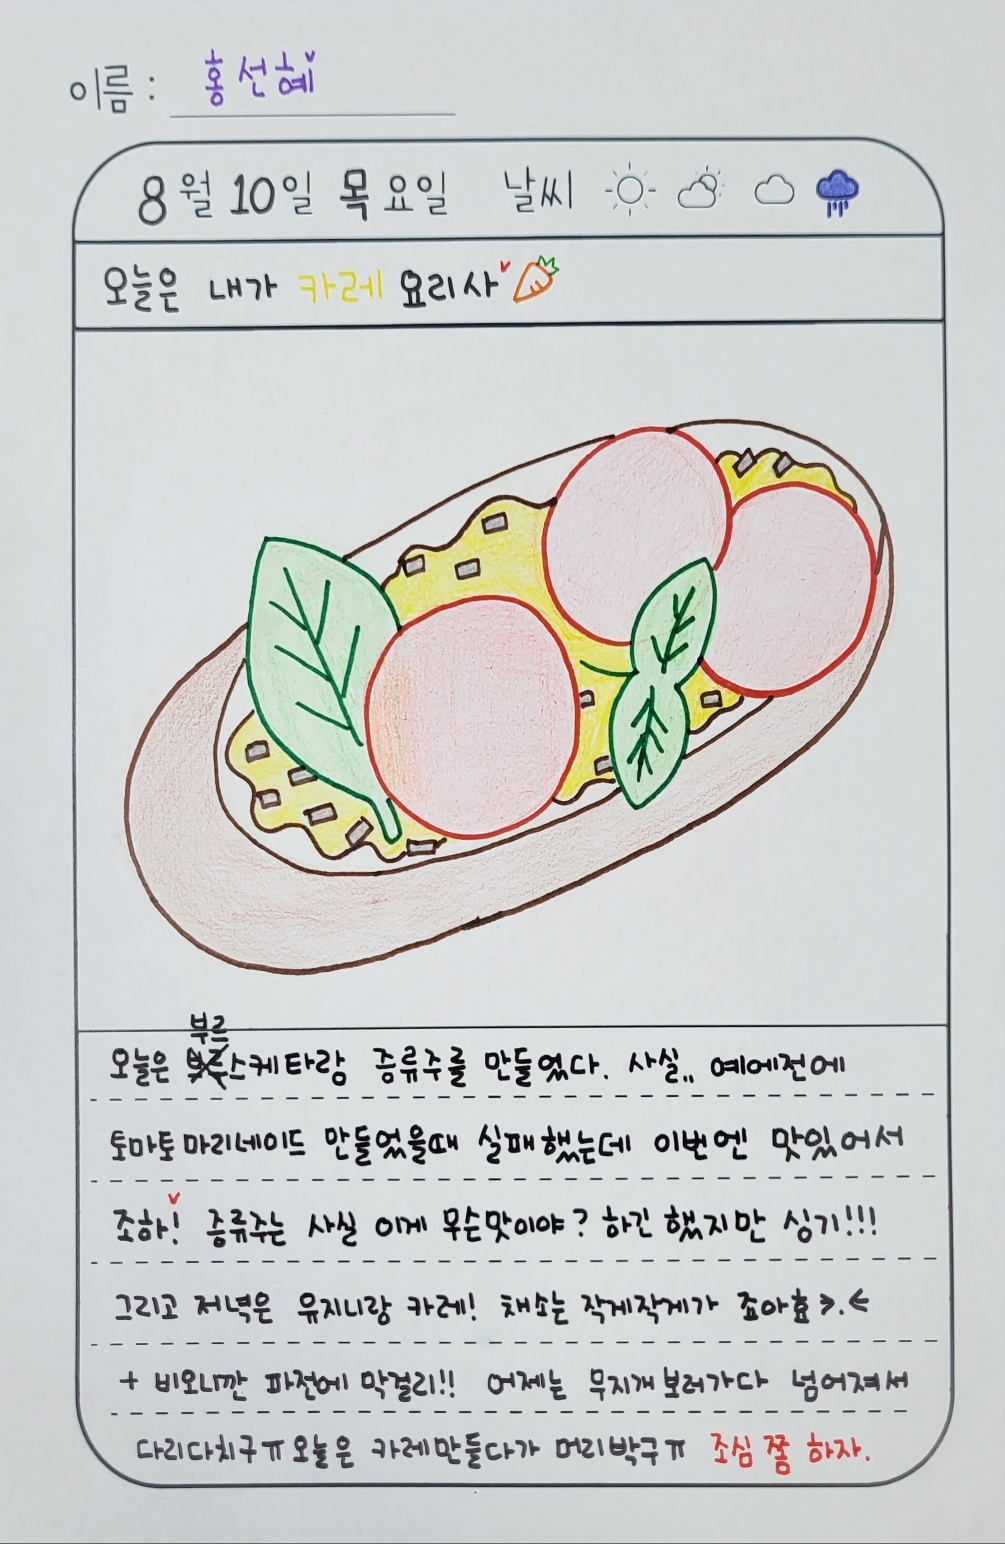 이름 : 홍선혜
8월 10일 목요일 날씨
오늘은 내가 카레 요리사
부르
오늘은 스케타랑 증류주를 만들었다. 사실,, 예에전에
토마토마리네이드 만들었을때 실패했는데 이번엔 맛있어서
조하! 증류주는 사실 이게 무슨맛이야? 하긴 했지만 싱기!!!
그리고 저녁은 유지니랑 카레! 채소는 작게작게가 죠아효>.<
+ 비오니깐 파전에 막걸리!! 어제는 무지개보러가다 넘어져서
다리다치구ㅠ오늘은 카레만들다가 머리박구ㅠ 조심 쫌 하자.